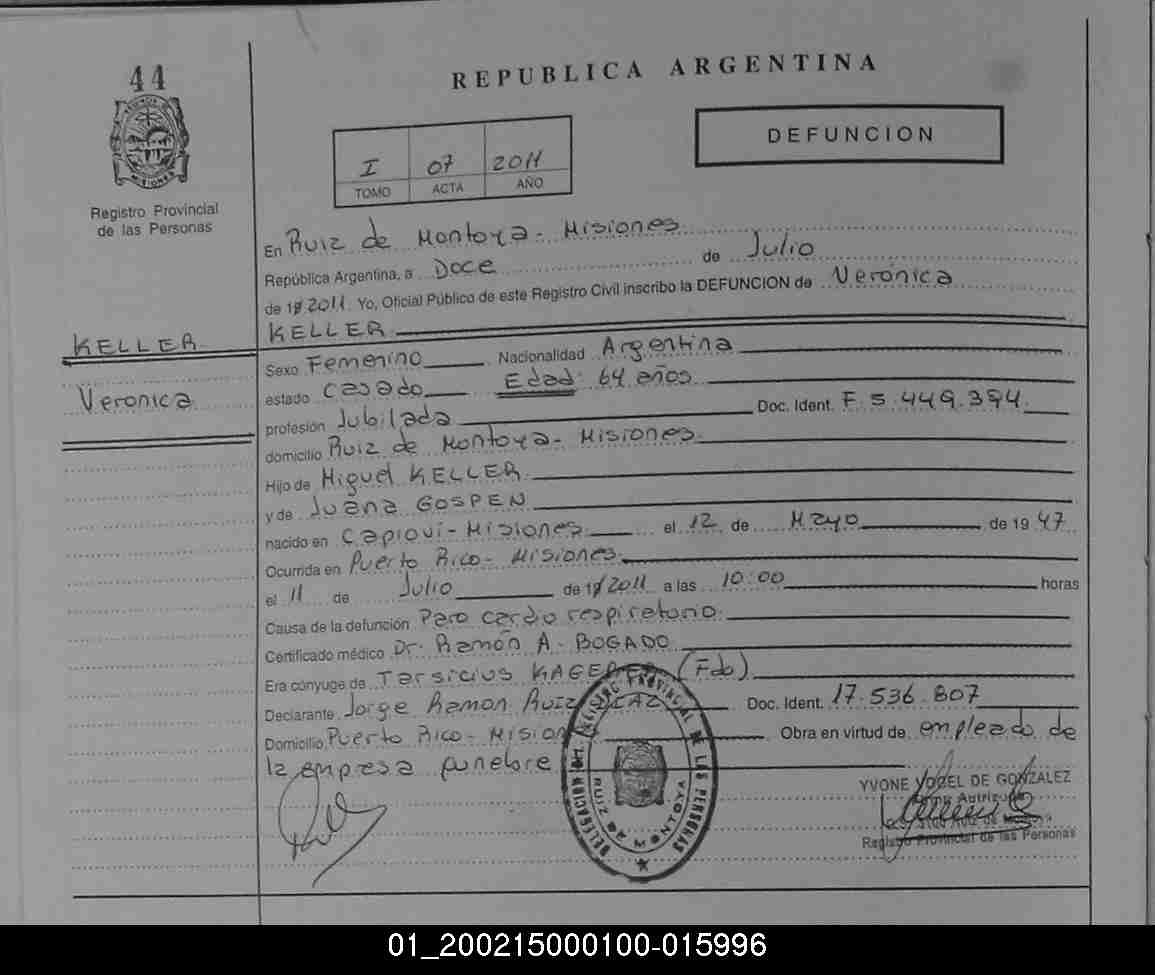 44
REPUBLICA ARGENTINA
DEFUNCION
I 07 2011
TOMO ACTA AÑO
MISIONES
Registro Provincial
de las Personas
En Ruiz de Montoya - Misiones
República Argentina, a Doce de Julio
de 19 2011 Yo, Oficial Público de este Registro Civil inscribo la DEFUNCION de Verónica
KELLER
KELLER
Veronica
Sexo Femenino Nacionalidad Argentina
estado Casado Edad: 64 años
profesión Jubilada Doc. Ident. F. 5.449.394
domicilio Ruiz de Montoya - Misiones
Hijo de Miguel KELLER
y de Juana GOSPEN
nacido en Capioví - Misiones el 12 de Mayo de 1947
Ocurrida en Puerto Rico - Misiones
el 11 de Julio de 19 2011 a las 10:00 horas
Causa de la defunción Paro cardio respiratorio
Certificado médico Dr. Ramón A. BOGADO
Era cónyuge de Tarsicius KAGERER (Fdo)
Declarante Jorge Ramon Ruiz DIAZ Doc. Ident. 17.536.807
Domicilio Puerto Rico - Mision Obra en virtud de empleado de
la empresa funebre
DELEGACION REGISTRO PROVINCIAL DE LAS PERSONAS
RUIZ DE MONTOYA
YVONE YOREL DE GONZALEZ
Registro Provincial de las Personas
01_200215000100-015996